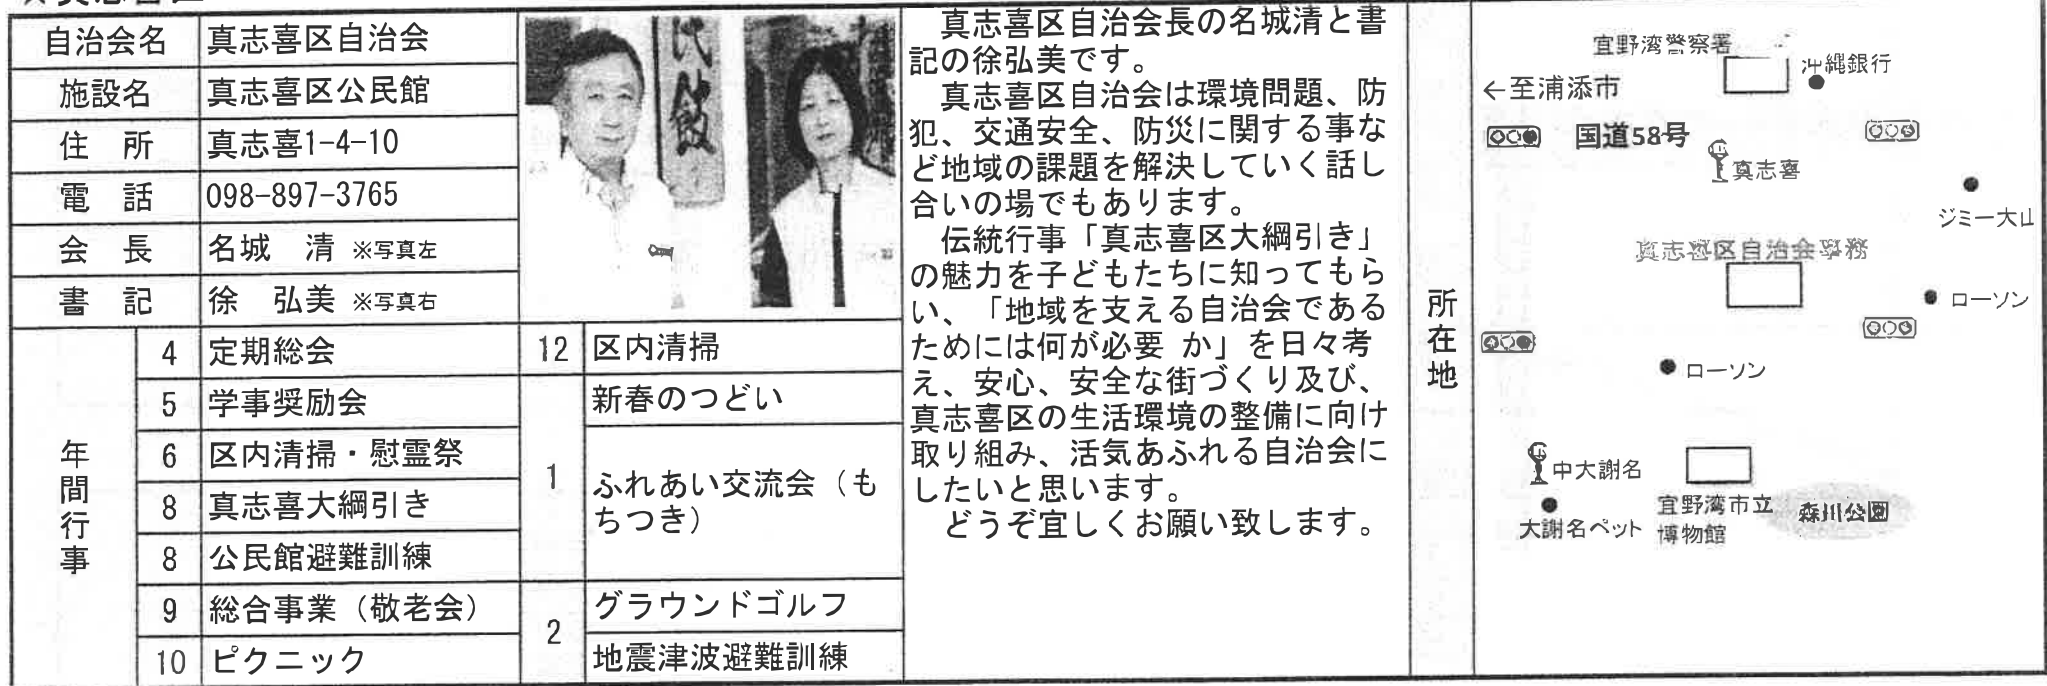 自治会名 真志喜区自治会
施設名 真志喜区公民館
住 所 真志喜1-4-10
電 話 098-897-3765
会 長 名城 清 ※写真左
書 記 徐 弘美 ※写真右
年間行事
4 定期総会
5 学事奨励会
6 区内清掃・慰霊祭
8 真志喜大綱引き
8 公民館避難訓練
9 総合事業（敬老会）
10 ピクニック
12 区内清掃
1 新春のつどい
ふれあい交流会（も
ちつき）
2 グラウンドゴルフ
地震津波避難訓練
民館
真志喜区自治会長の名城清と書
記の徐弘美です。
真志喜区自治会は環境問題、防
犯、交通安全、防災に関する事な
ど地域の課題を解決していく話し
合いの場でもあります。
伝統行事「真志喜区大綱引き」
の魅力を子どもたちに知ってもら
い、「地域を支える自治会である
ためには何が必要 か」を日々考
え、安心、安全な街づくり及び、
真志喜区の生活環境の整備に向け
取り組み、活気あふれる自治会に
したいと思います。
どうぞ宜しくお願い致します。
所在地
宜野湾警察署
沖縄銀行
←至浦添市
国道58号
真志喜
ジミー大山
真志喜区自治会事務
ローソン
ローソン
中大謝名
大謝名ペット
宜野湾市立
博物館
森川公園